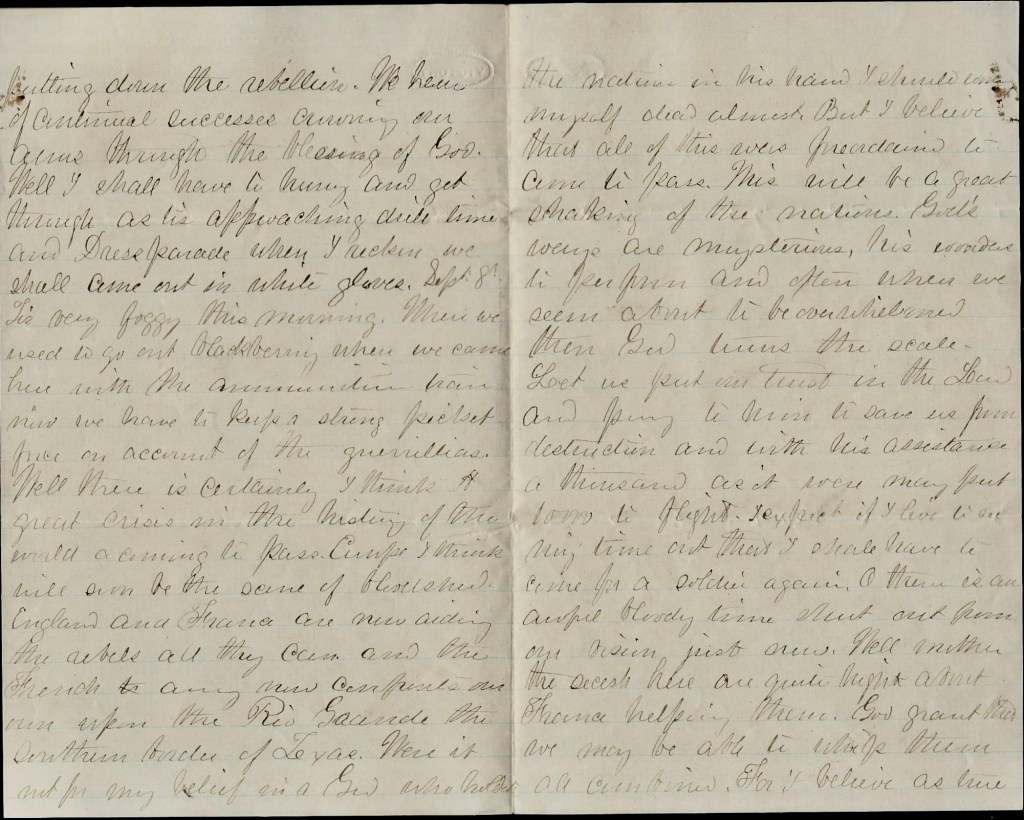 putting down the rebellion. We hear
of continual successes crowning our
arms through the blessing of God.
Well I shall have to hurry and get
through as tis approaching drill time
and Dress parade when I reckon we
shall come out in white gloves. Sept 8th
Tis very foggy this morning. When we
used to go out blackberrying when we came
here with the ammunition train
now we have to keep a strong picket
force on account of the guerrillias.
Well there is certainly I think A
great crisis in the history of the
world a coming to pass. Europe I think
will soon be the scene of bloodshed.
England and France are now aiding
the rebels all they can. and the
French army now confronts our
own upon the Rio Gaande the
southern border of Texas. Were it
not for my belief in a God who holds
the nations in his hand I should
myself dead almost. But I believe
that all of this was foreordaind to
come to pass. This will be a great
shaking of the nations. God's
ways are mysterious, his wonders
to perform and often when we
seem about to be overwhelmed
then God turns the scale.
Let us put our trust in the Lord
and pray to him to save us from
destruction and with his assistance
a thousand as it were may put
10000 to flight. I expect if I live to see
my time out that I shall have to
come for a soldier again. O there is an
awful bloody time shut out from
our vision just now. Well mother
the secesh here are quite hight about
France helping them. God grant that
we may be able to whip them
all combined. For I believe as true